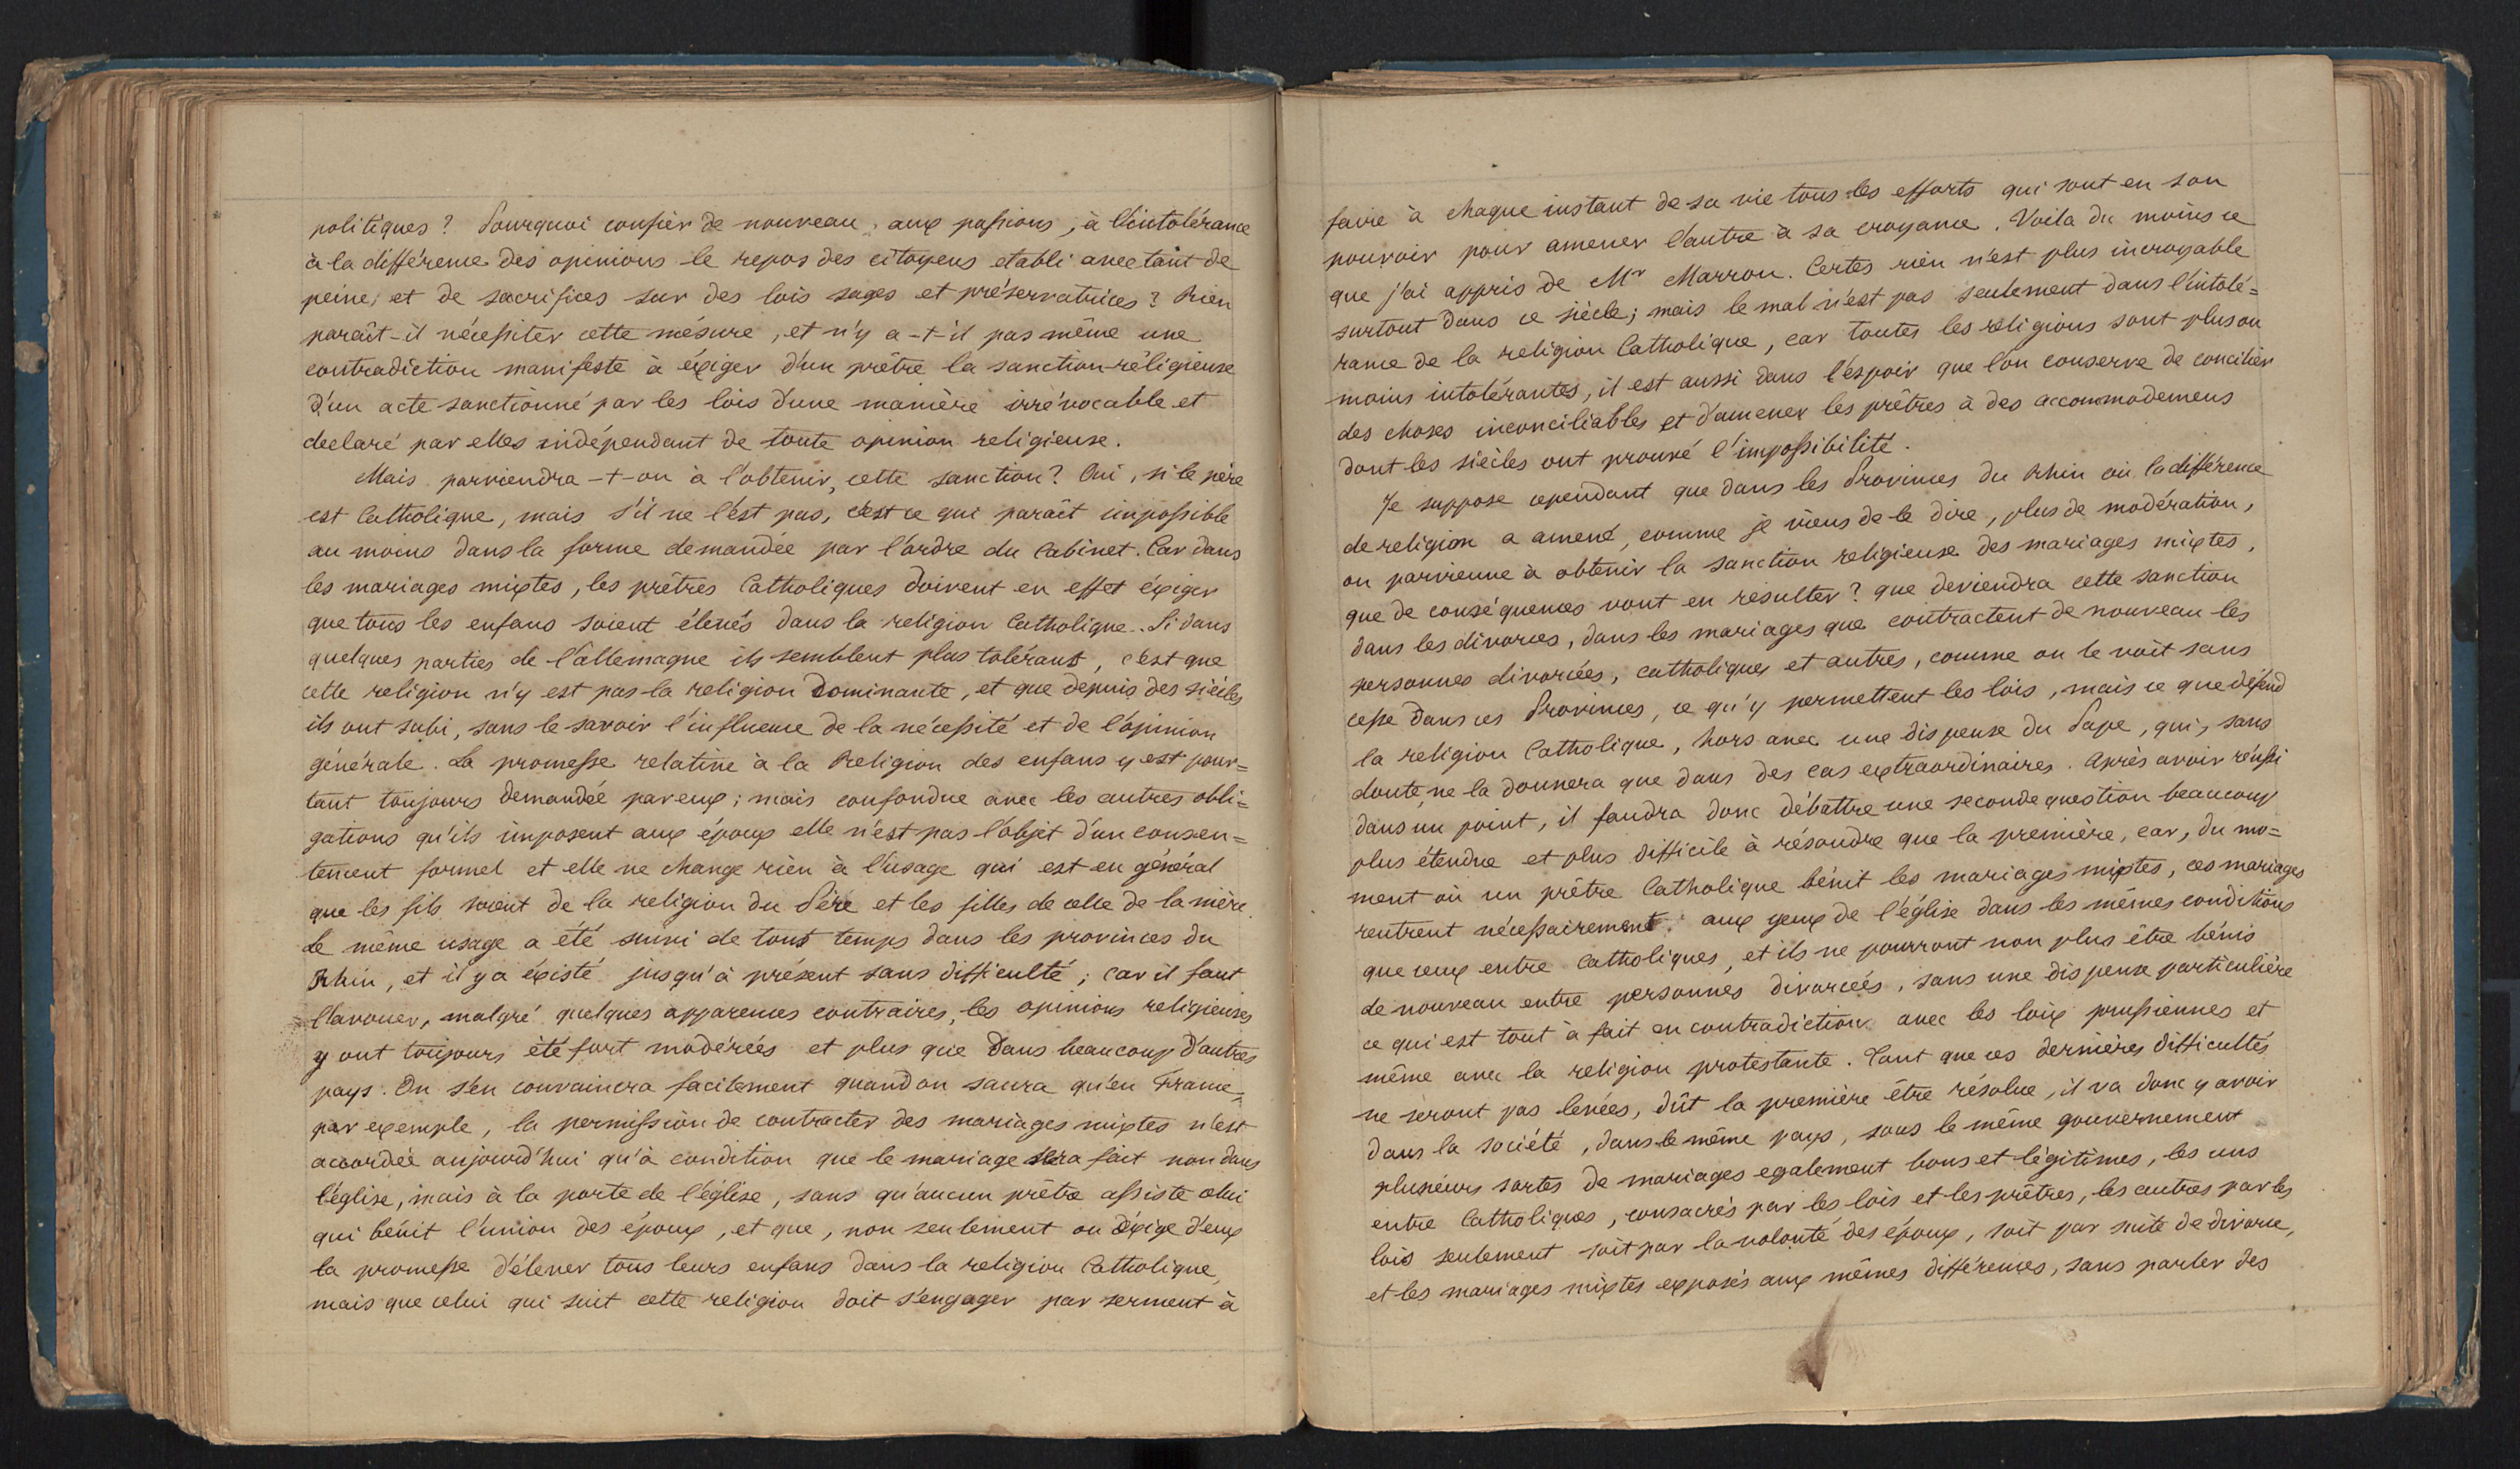 politiques? Pourquoi confier de nouveau, aux passions, à l'intolérance
à la différence des opinions le repos des citoyens etabli avec tant de
peine, et de sacrifices sur des lois sages et préservatrices? Rien
paraît-il nécessiter cette mésure, et n'y a-t-il pas même une
contradiction manifeste à éxiger d'un prêtre la sanction réligieuse
d'un acte sanctionné par les lois d'une manière irrévocable et
declaré par elles indépendant de toute opinion religieuse.
Mais parviendra-t-on à l'obtenir, cette sanction? Oui, si le père
est Catholique, mais s'il ne l'est pas, c'est ce qui paraît impossible
au moins dans la forme demandée par l'ordre du Cabinet. Car dans
les mariages mixtes, les prêtres Catholiques doivent en effet éxiger
que tous les enfans soient élevés dans la religion Catholique. Si dans
quelques parties de l'allemagne ils semblent plus tolérans, c'est que
cette religion n'y est pas la religion Dominante, et que depuis des siècles
ils ont subi, sans le savoir l'influence de la nécessité et de l'opinion
générale. La promesse relative à la Religion des enfans y est pour=
tant toujours demandée par eux; mais confondue avec les autres obli=
gations qu'ils imposent aux époux elle n'est pas l'objet d'un consen=
tement formel et elle ne change rien à l'usage qui est en général
que les fils soient de la religion du Père et les filles de celle de la mère.
Le même usage a été suivi de tout temps dans les provinces du
Rhin, et il y a éxisté jusqu'à présent sans difficulté; car il faut
l'avouer, malgré quelques apparences contraires, les opinions religieuses
y ont toujours été fort modérées et plus que dans beaucoup d'autres
pays. On s'en convaincra facilement quand on saura qu'en France,
par exemple, la permission de contracter des mariages mixtes n'est
accordée aujourd'hui qu'à condition que le mariage sera fait non dans
l'église, mais à la porte de l'église, sans qu'aucun prêtre assiste celui
qui bénit l'union des époux, et que, non seulement on éxige d'eux
la promesse d'élever tous leurs enfans dans la religion Catholique,
mais que celui qui suit cette religion doit s'engager par serment à
faire à chaque instant de sa vie tous les efforts qui sont en son
pouvoir pour amener l'autre à sa croyance. Voila du moins ce
que j'ai appris de Mr Marron. Certes rien n'est plus incroyable
surtout dans ce siècle; mais le mal n'est pas seulement dans l'intolé=
rance de la religion Catholique, car toutes les religions sont plus ou
moins intolérantes, il est aussi dans l'espoir que l'on conserve de concilier
des choses inconciliables et d'amener les prêtres à des accommodemens
dont les siècles ont prouvé l'impossibilité.
Je suppose cependant que dans les Provinces du Rhin où la différence
de religion a amené, comme je viens de le dire, plus de modération,
on parvienne à obtenir la sanction religieuse des mariages mixtes,
que de conséquences vont en résulter? que deviendra cette sanction
dans les divorces, dans les mariages que contractent de nouveau les
personnes divorcées, catholiques et autres, comme on le voit sans
cesse dans ces Provinces, ce qu'y permettent les lois, mais ce que défend
la religion Catholique, hors avec une dispense du Pape, qui, sans
doute, ne la donnera que dans des cas extraordinaires. Après avoir réussi
dans un point, il faudra donc débattre une seconde question beaucoup
plus étendue et plus difficile à résoudre que la première, car, du mo=
ment où un prêtre Catholique bénit les mariages mixtes, ces mariages
rentrent nécessairement aux yeux de l'église dans les mêmes conditions
que ceux entre Catholiques, et ils ne pourront non plus être bénis
de nouveau entre personnes divorcées, sans une dispense particulière
ce qui est tout à fait en contradiction avec les loix prussiennes et
même avec la religion protestante. Tant que ces dernières difficultés
ne seront pas levées, dût la première être résolue, il va donc y avoir
dans la société, dans le même pays, sous le même gouvernement
plusieurs sortes de mariages egalement bons et légitimes, les uns
entre Catholiques, consacrés par les lois et les prêtres, les autres par les
lois seulement soit par la volonté des époux, soit par suite de divorce,
et les mariages mixtes exposés aux mêmes différences, sans parler des